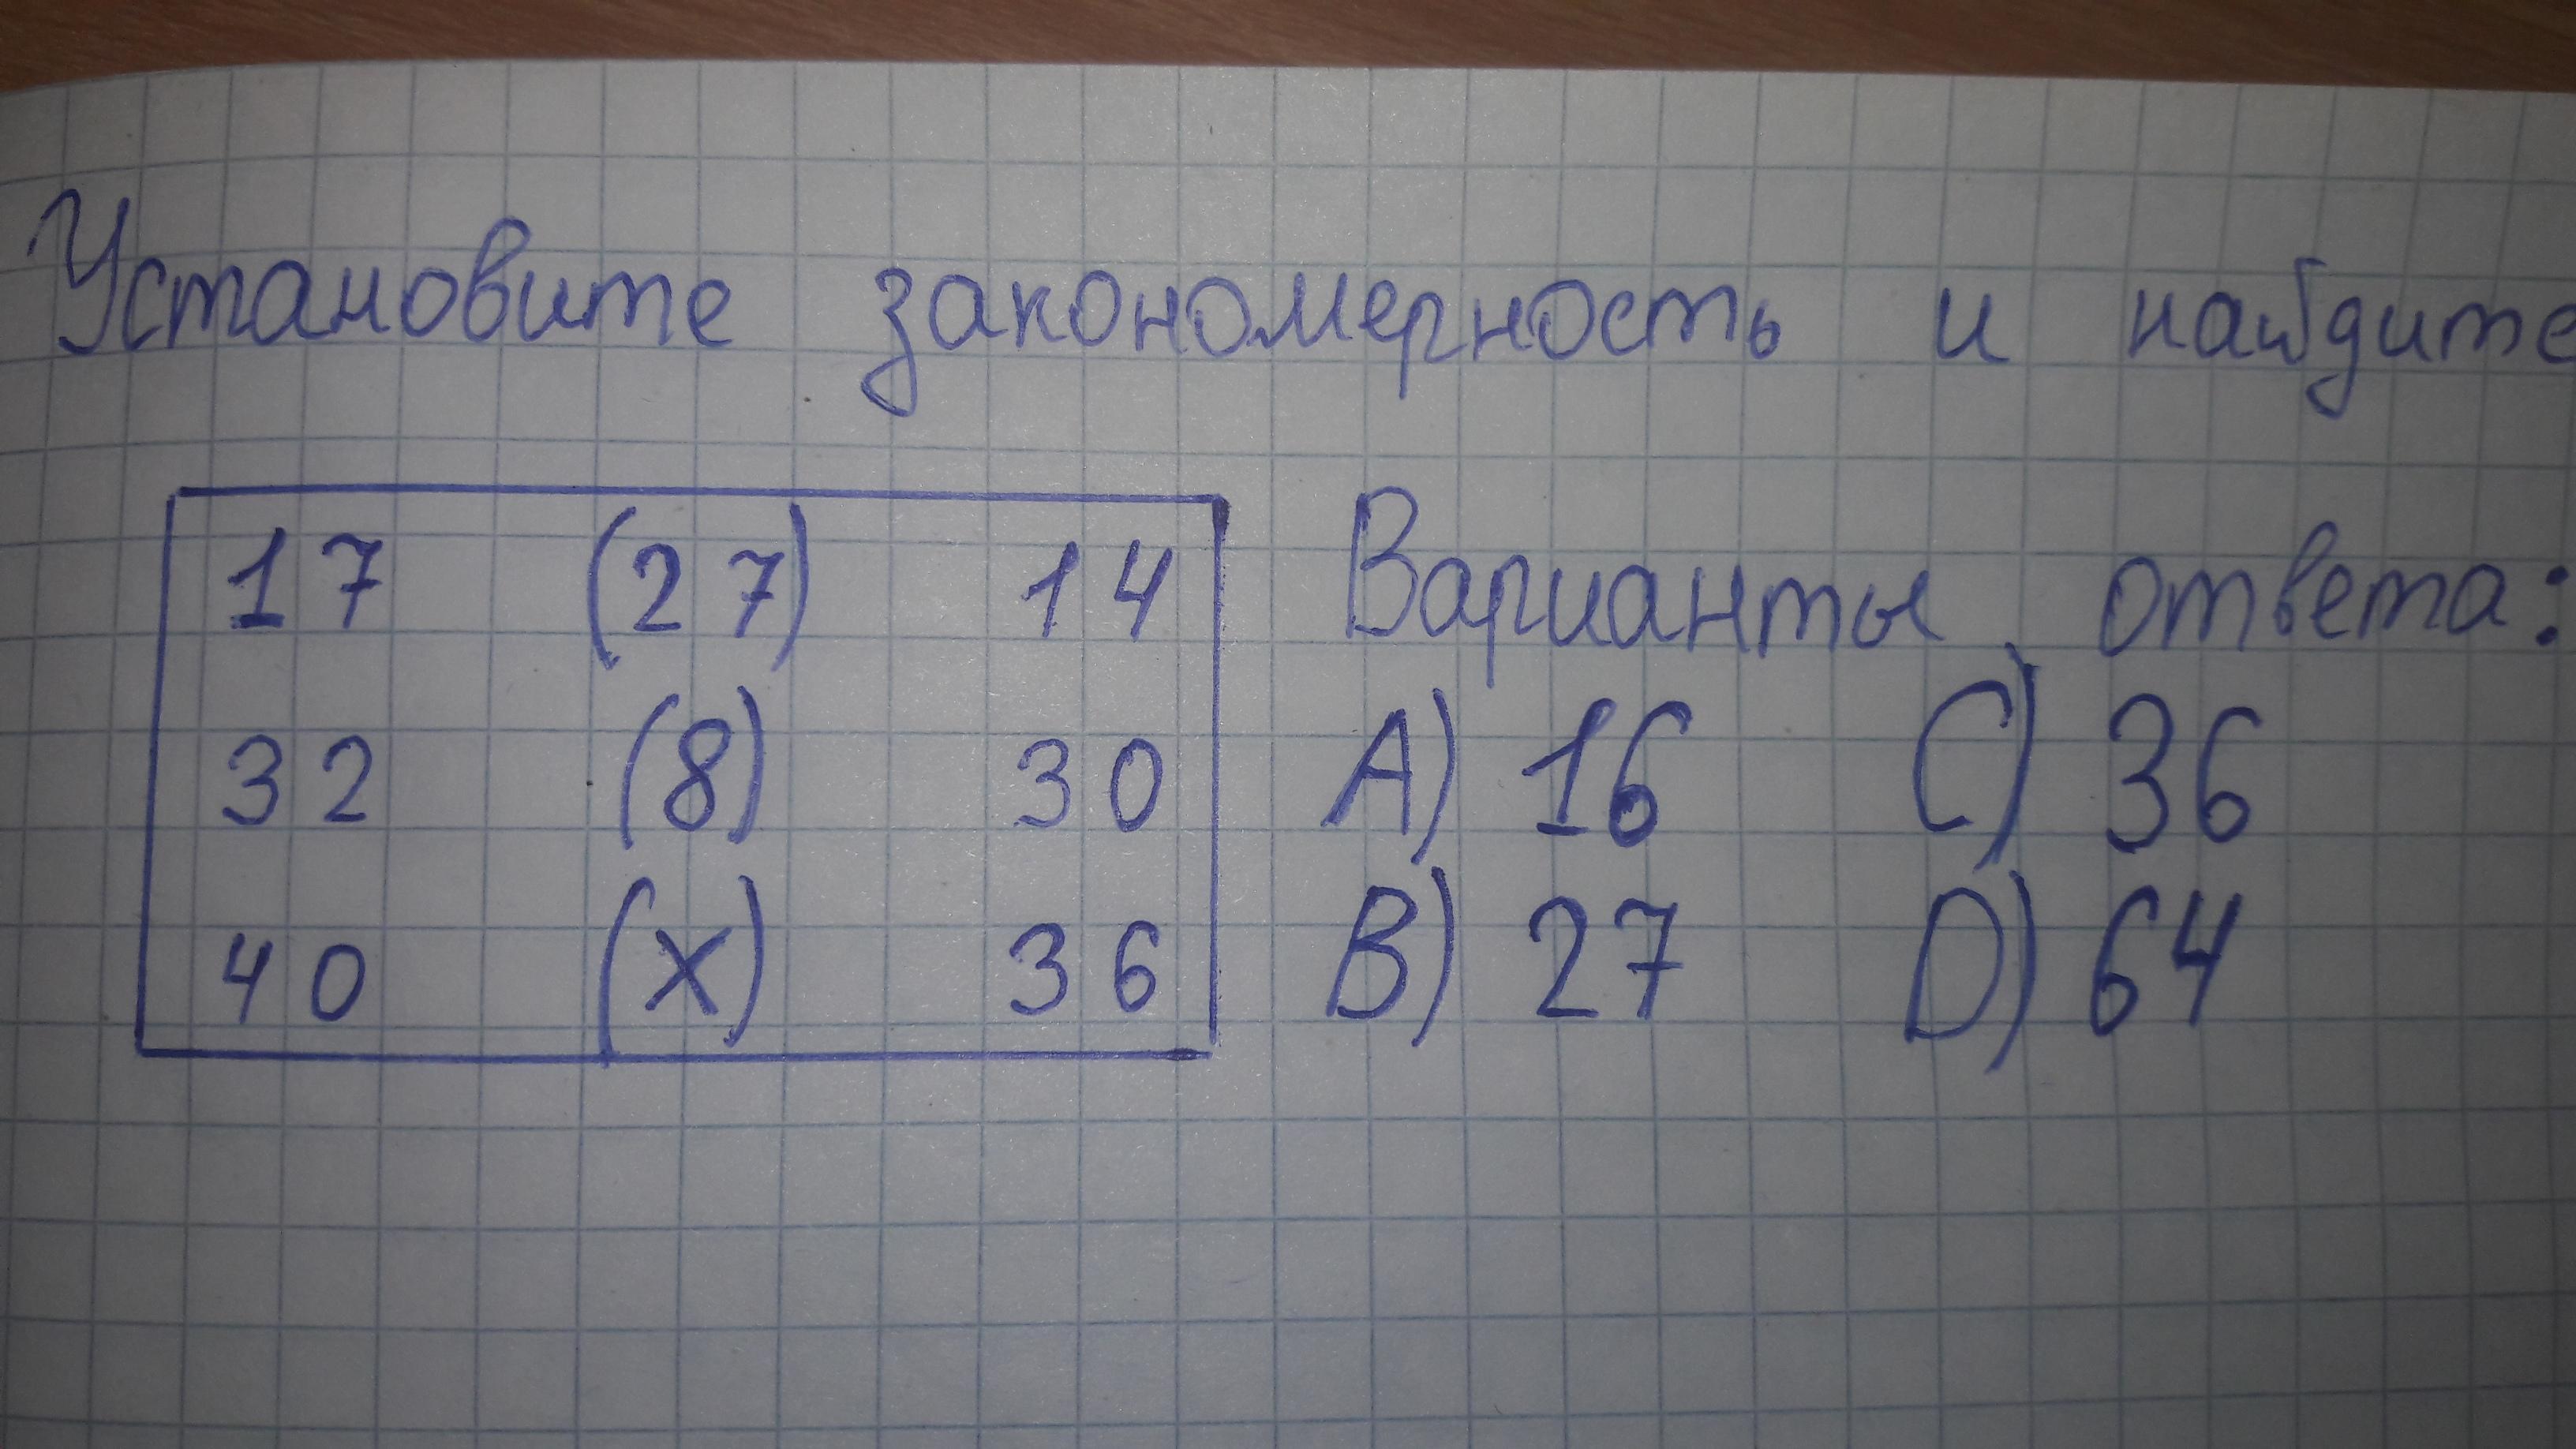 Установите закономерность и найдите
17 (27) 14 Варианты ответа:
32 (8) 30 A) 16 C) 36
40 (x) 36 B) 27 D) 64